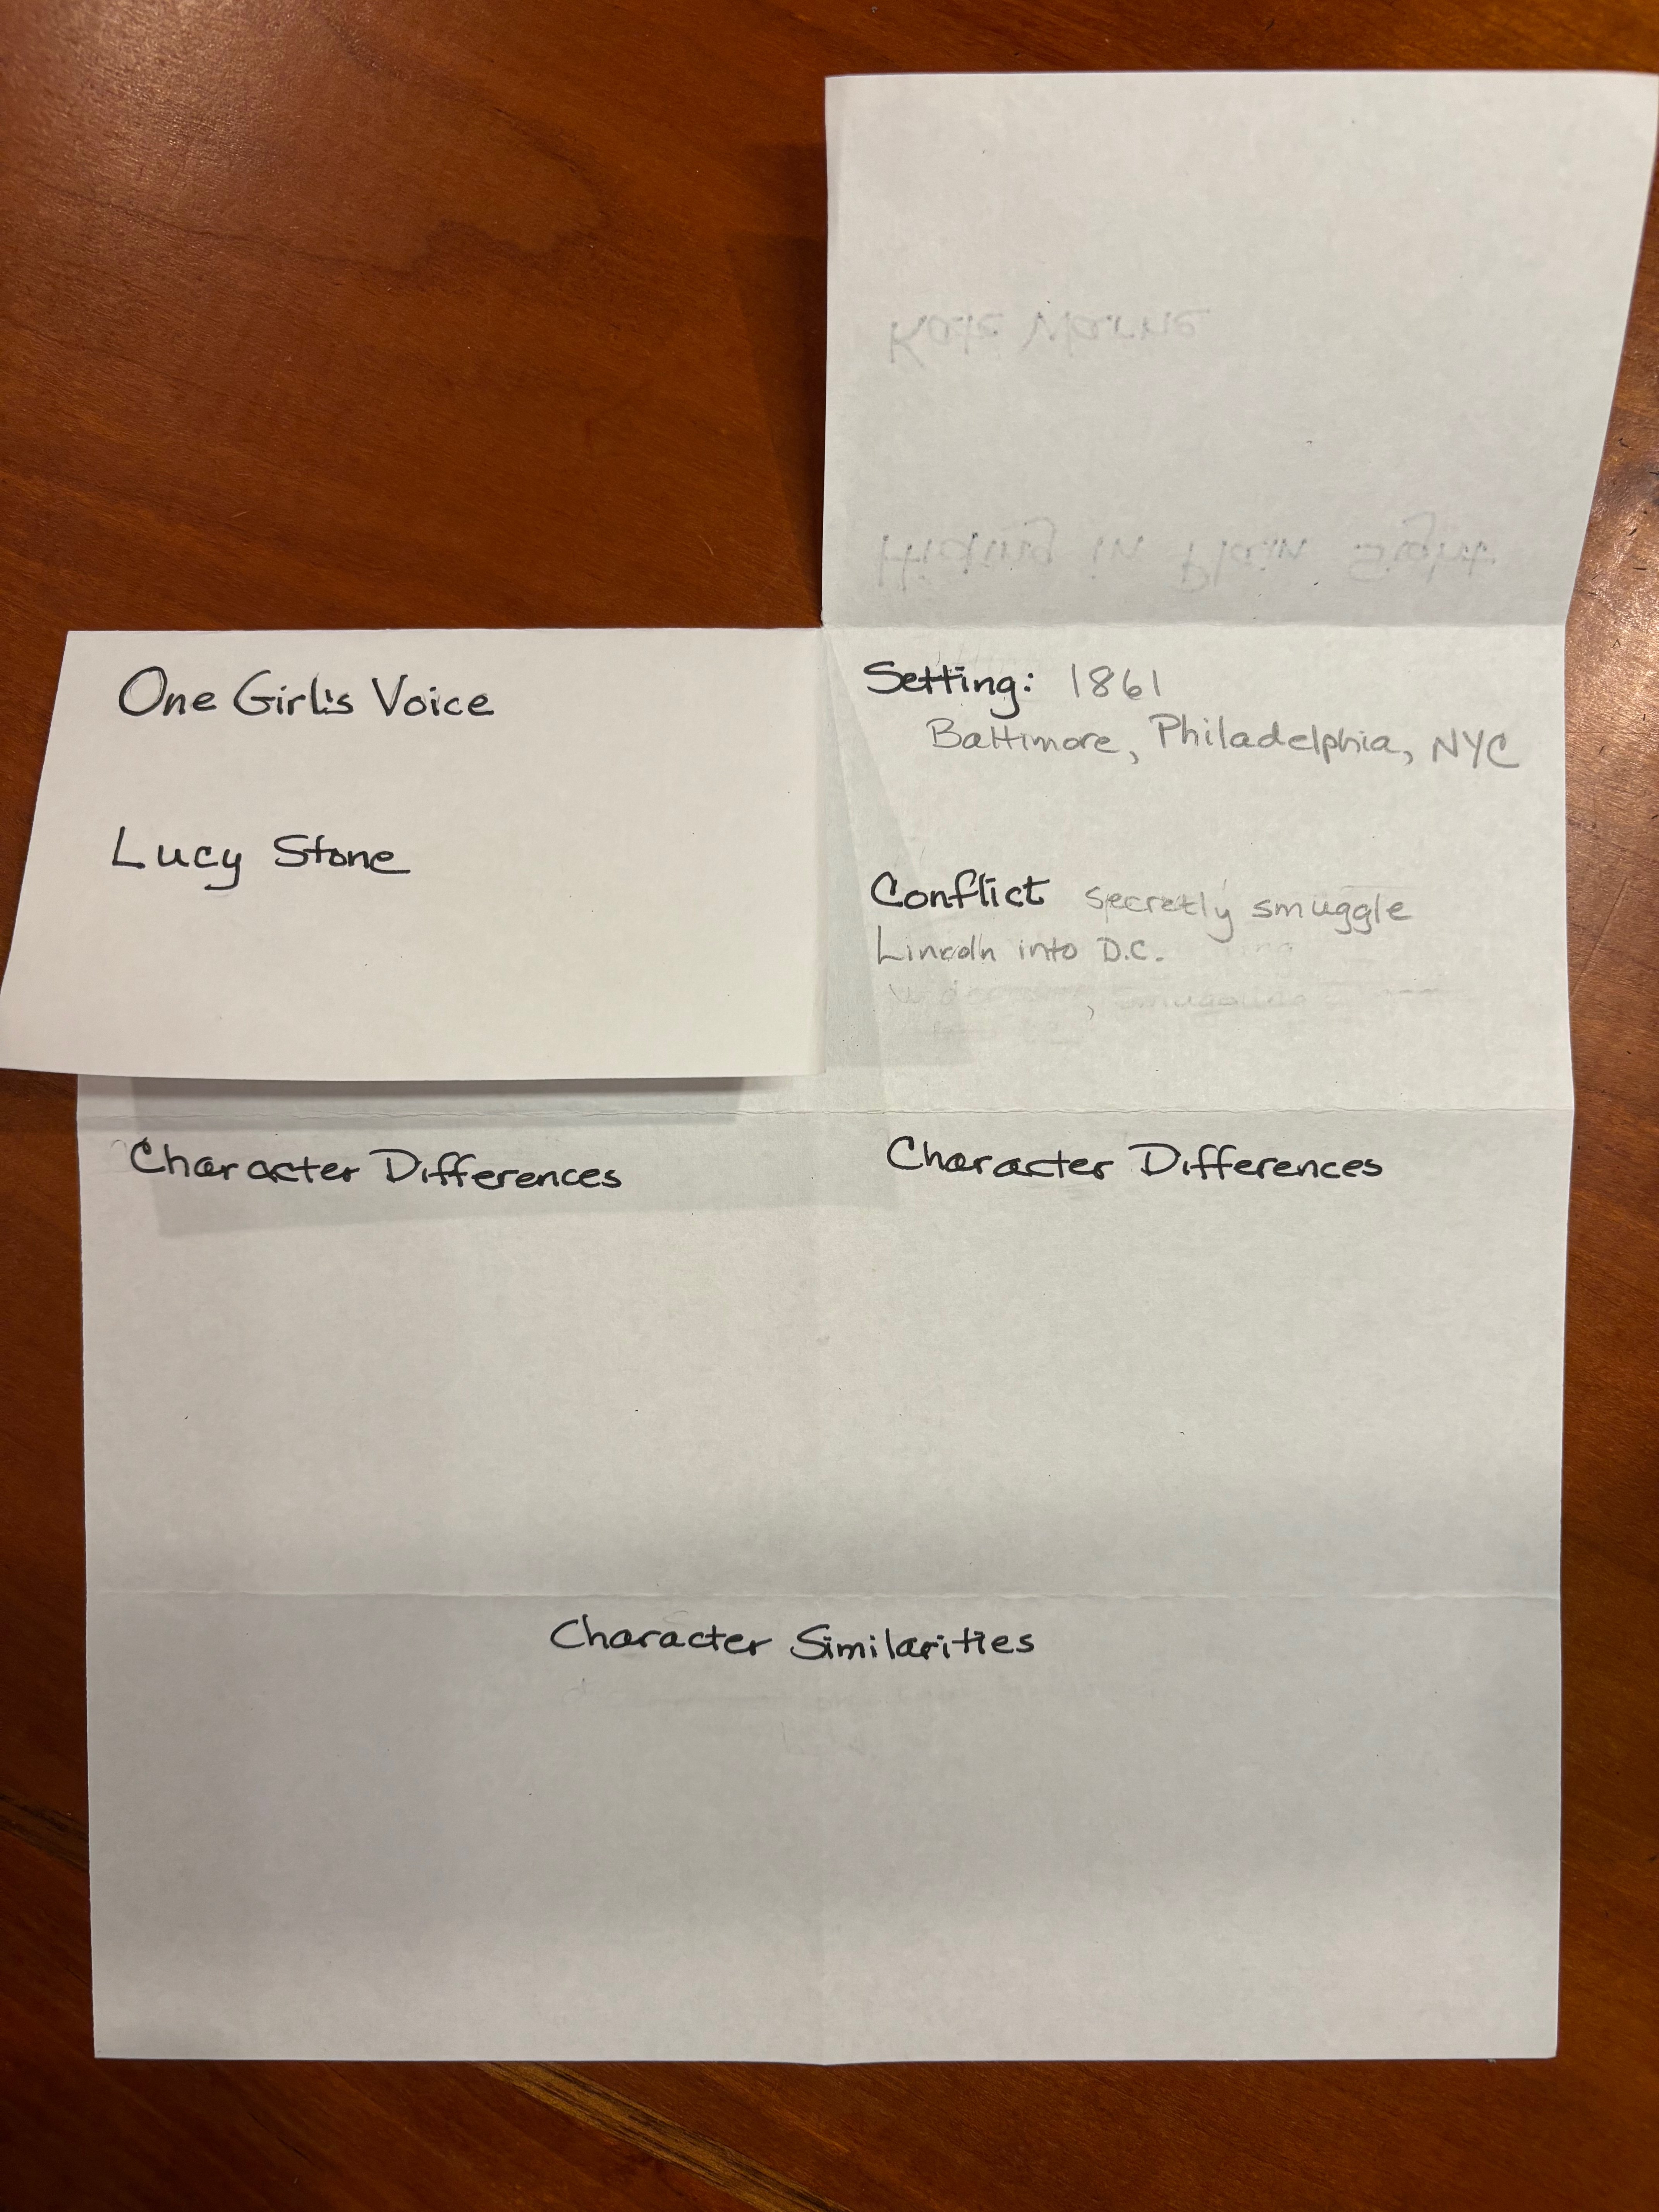 Kate Warne
Hiding in plain sight
One Girl's Voice
Lucy Stone
Setting: 1861
Baltimore, Philadelphia, NYC
Conflict secretly smuggle
Lincoln into D.C.
Character Differences
Character Differences
Character Similarities